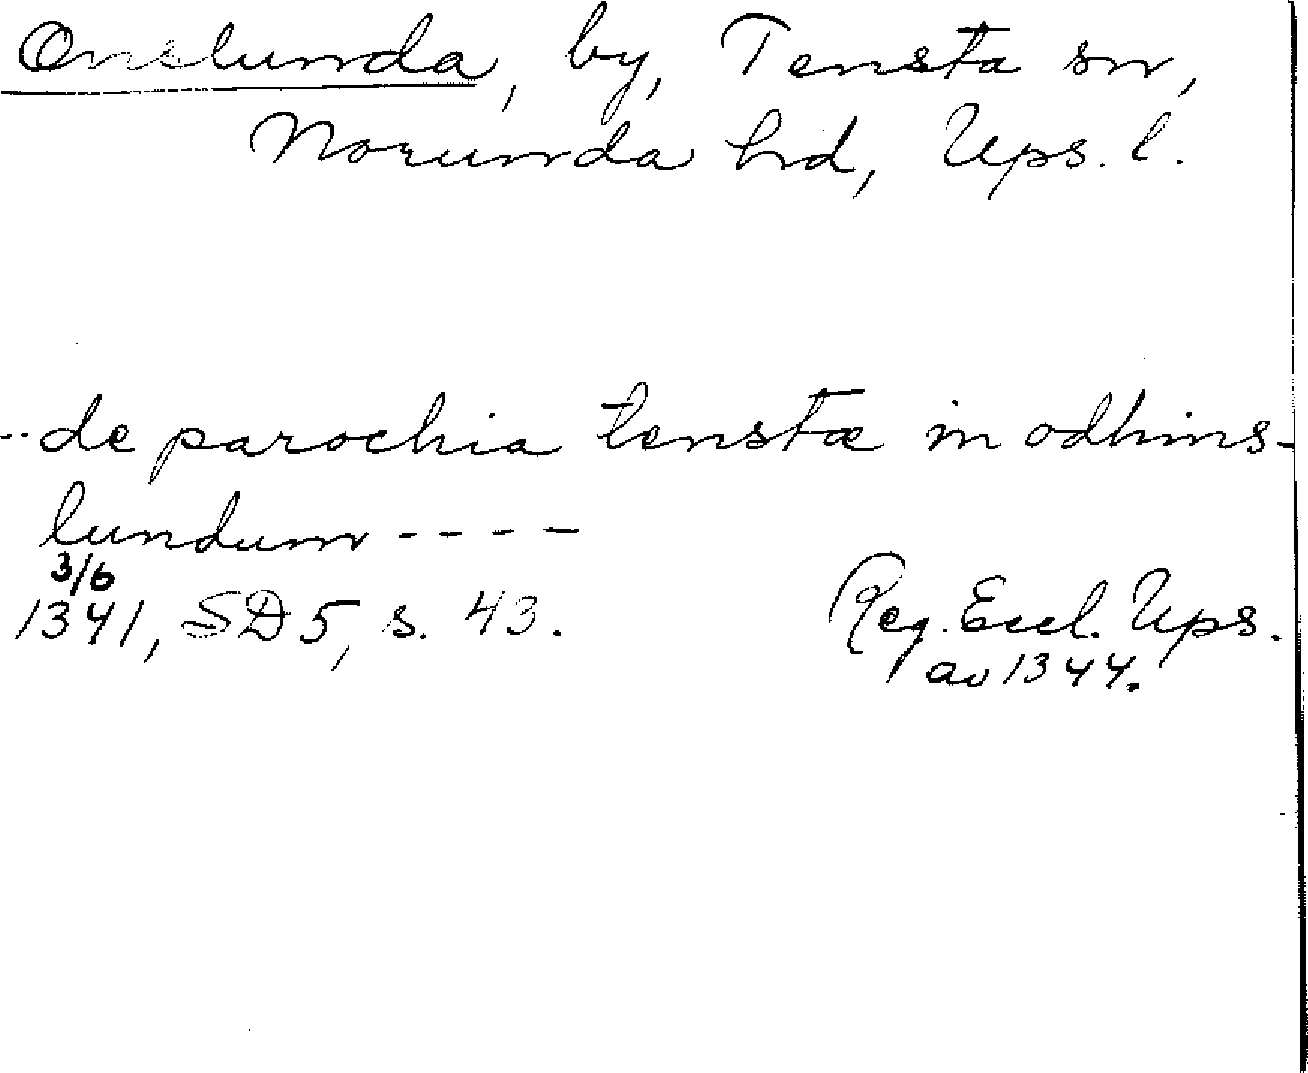 Onslunda, by, Tensta sn,
Norunda hd, Ups. l.
-- de parochia tenstæ in odhins-
lundum ----
3/6
1341, SD 5, s. 43.
Reg. Eccl. Ups.
av 1344.